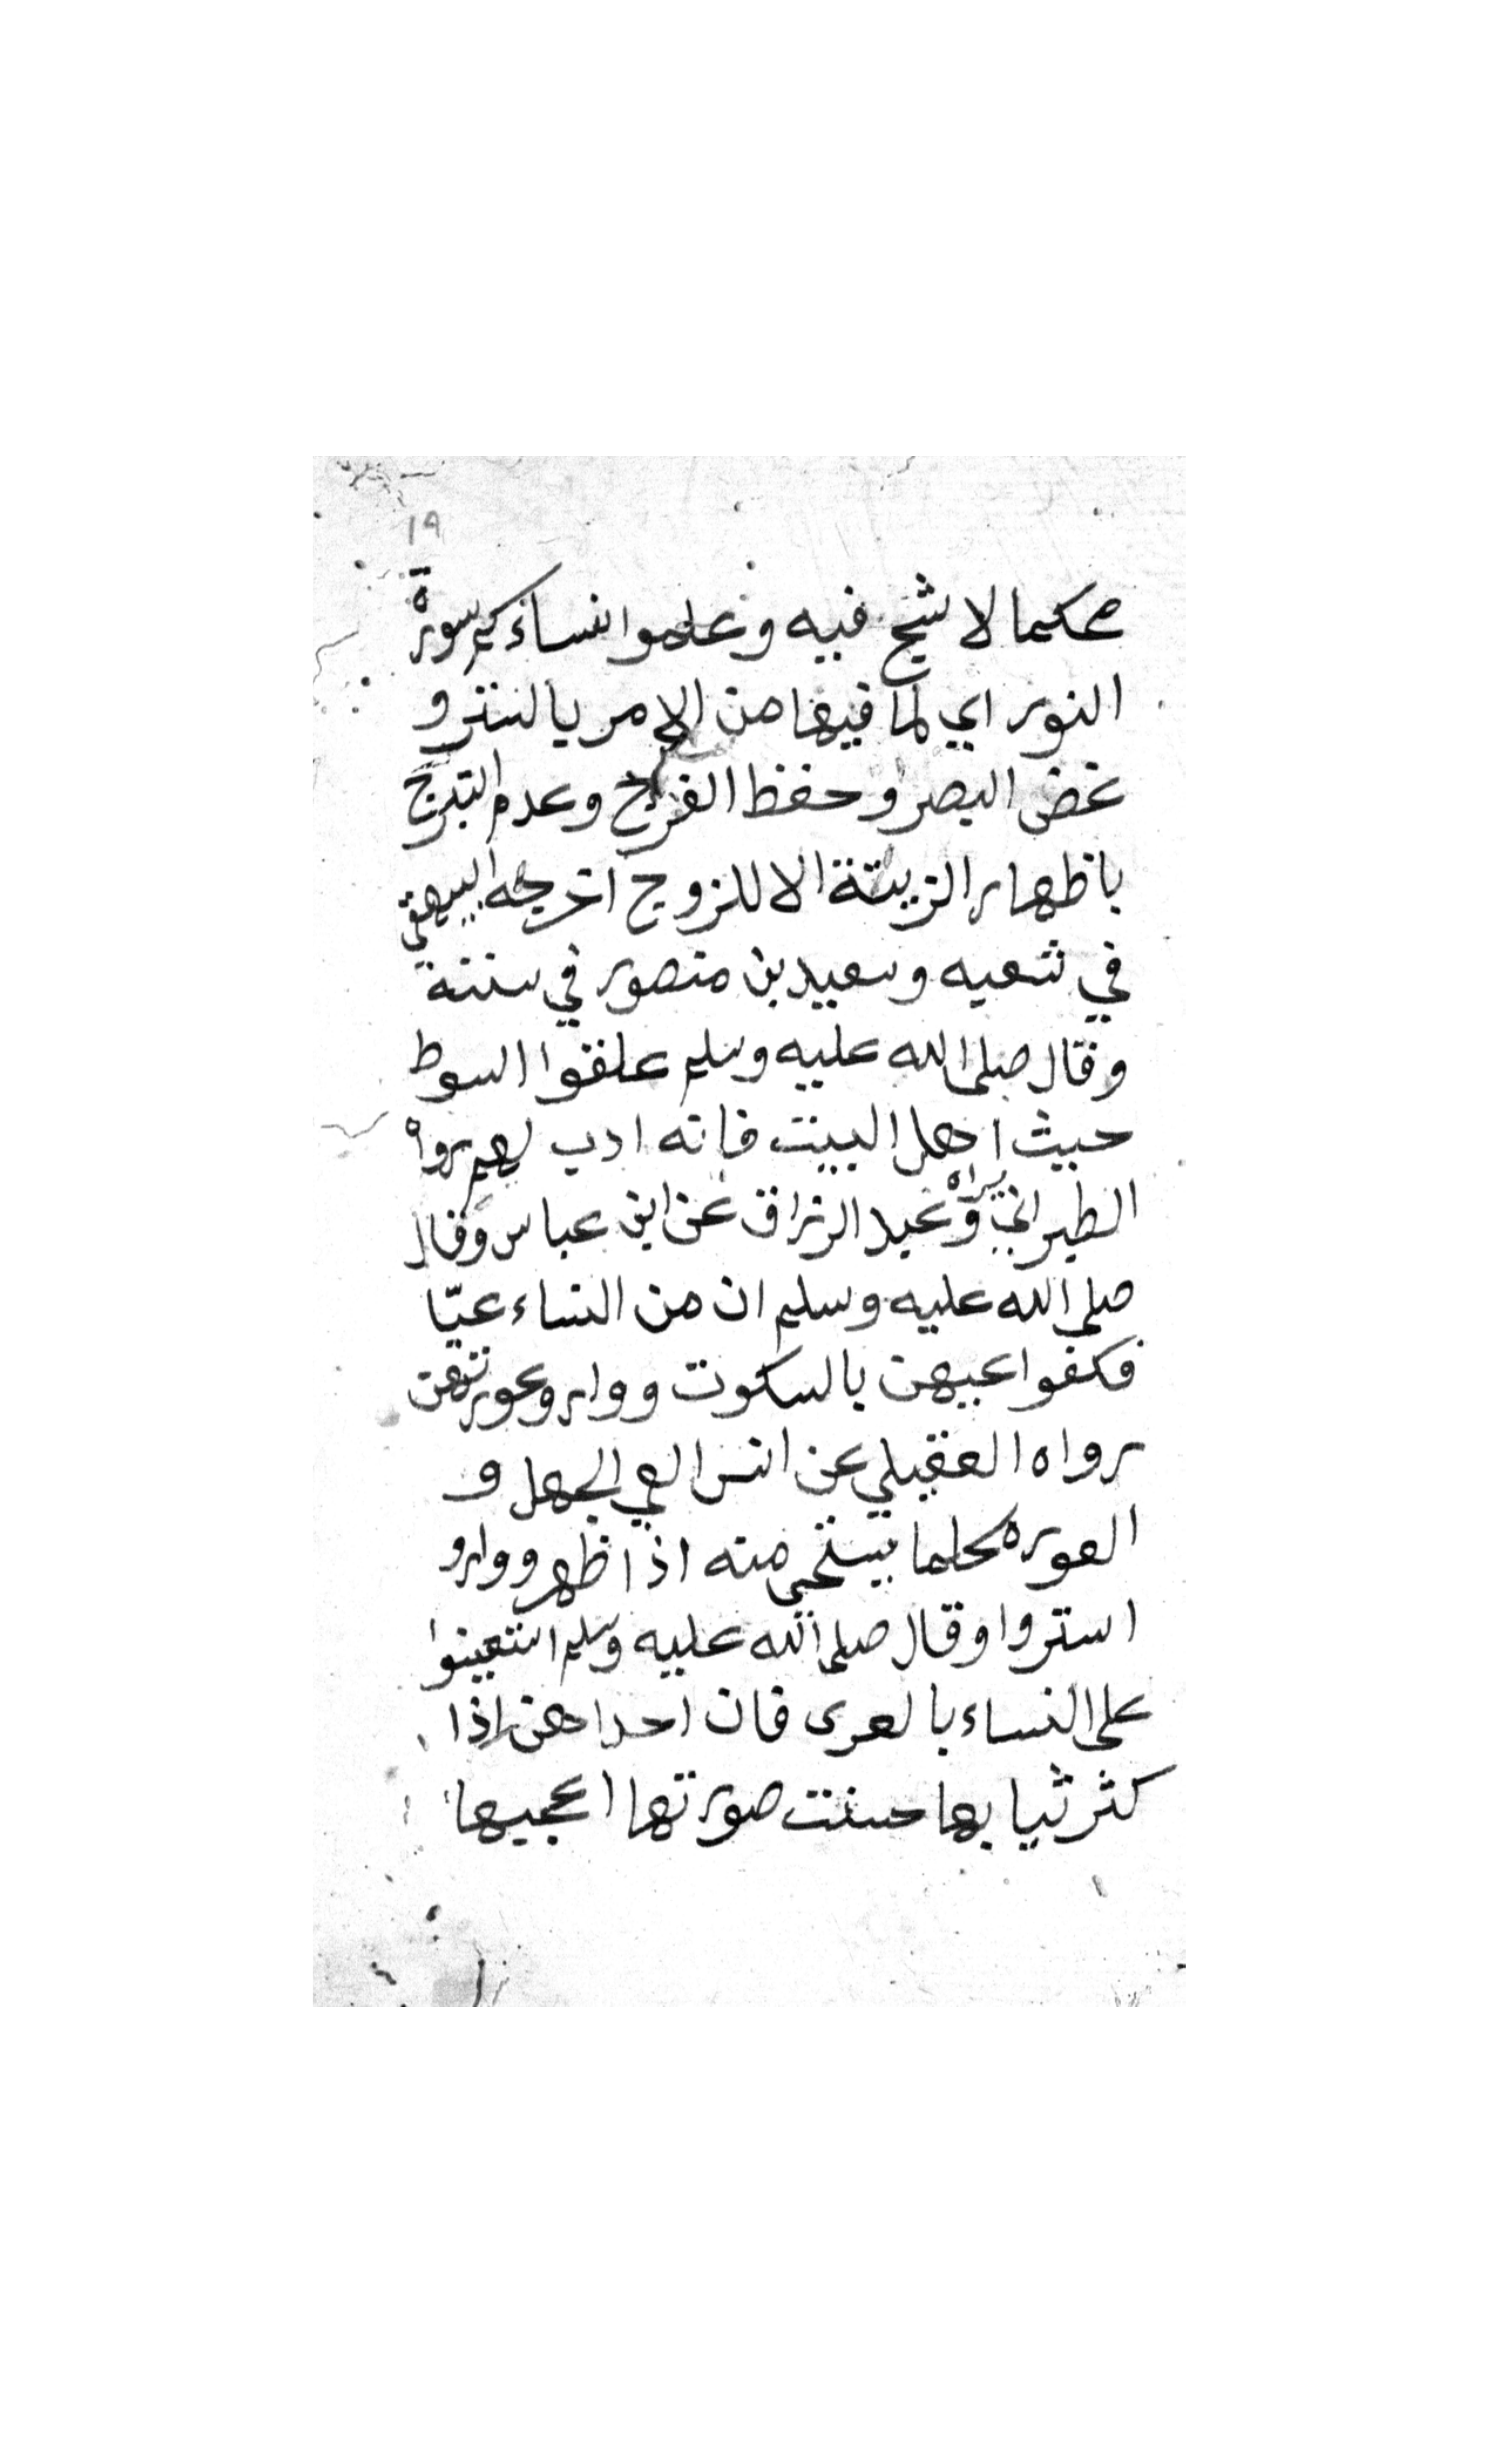 ١٩
محكما لا شيخ فيه وعلموا نساءكم سورة
النور اي لما فيها من الامر بالتستر و
غض البصر وحفظ الفرج وعدم التبرج
باظهار الزينة الا للزوج اخرجه البيهقي
في شعبه وسعيد بن منصور في سننه
وقال صلى الله عليه وسلم علقوا السوط
حيث اهل البيت فانه ادب لهم رواه
الطبراني وعبد الرزاق عن ابن عباس وقال
صلى الله عليه وسلم ان من النساء عيّا
فكفوا عيهن بالسكوت وواروعورتهن
رواه العقيلي عن انس العي الجهل و
العوره كلما يستحي منه اذا ظهر ووارو
استروا وقال صلى الله عليه وسلم استعينوا
على النساء بالعرى فان احداهن اذا
كثر ثيابها حسنت صورتها اعجبها